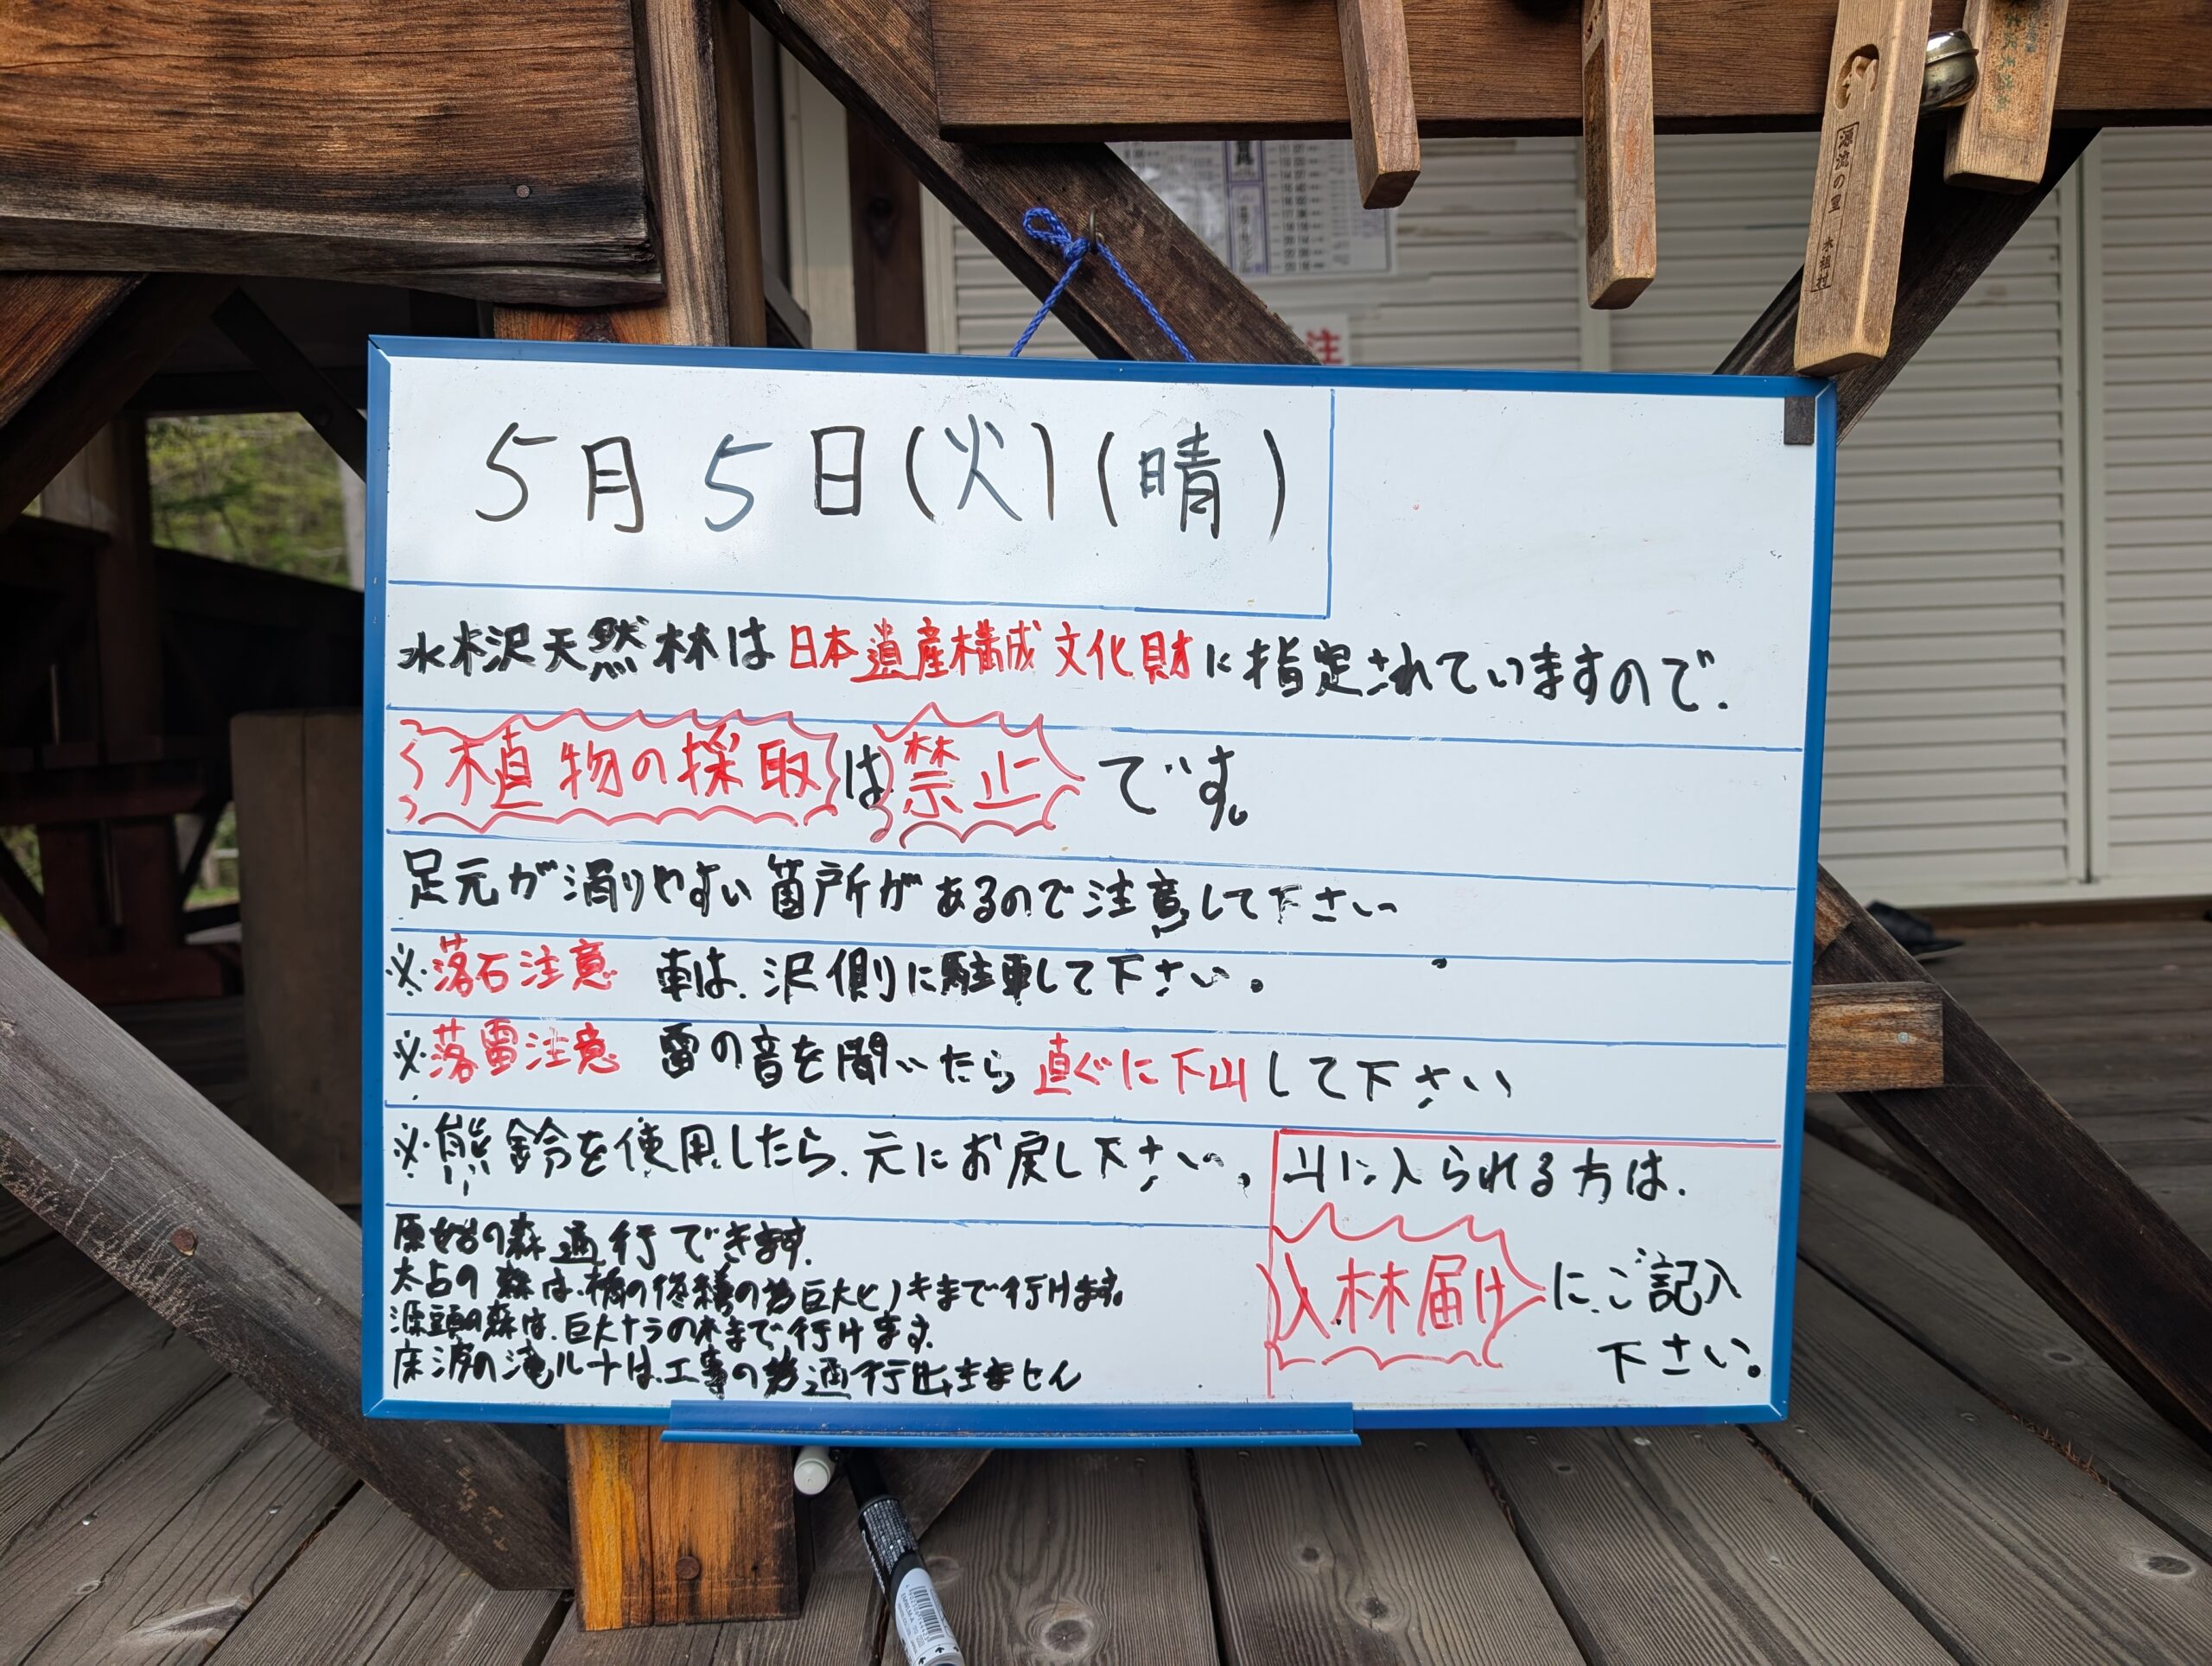 源流の里 木祖村
注
5月5日(火)(晴)
水木沢天然林は日本遺産構成文化財に指定されていますので.
植物の採取は禁止です。
足元が滑りやすい箇所があるので注意して下さい
※落石注意 車は.沢側に駐車して下さい。
※落雷注意 雷の音を聞いたら直ぐに下山して下さい
※熊鈴を使用したら.元にお戻し下さい。
山に入られる方は.
入林届けにご記入
下さい。
原始の森通行できます.
太古の森は.橋の修繕の為巨大ヒノキまで行けます。
源頭の森は.巨大ナラの木まで行けます.
床浪の滝ルートは.工事の為通行出来ません